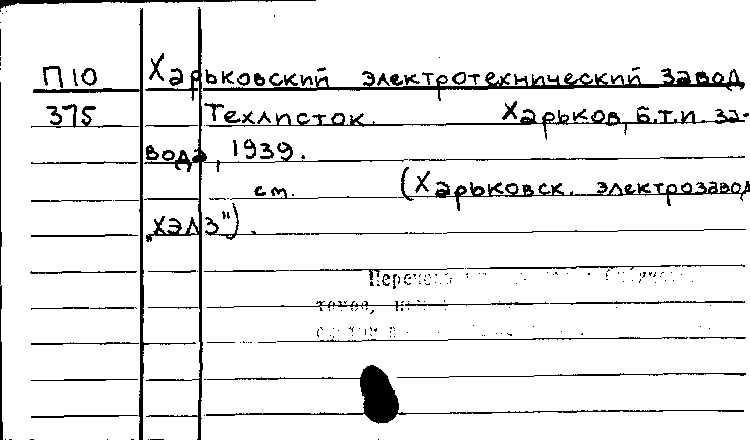 П10 Харьковский электротехнический завод
375 Техлисток. Харьков, Б.Т.И. за-
вода, 1939.
см. (Харьковск. электрозавод
„ХЭЛЗ").